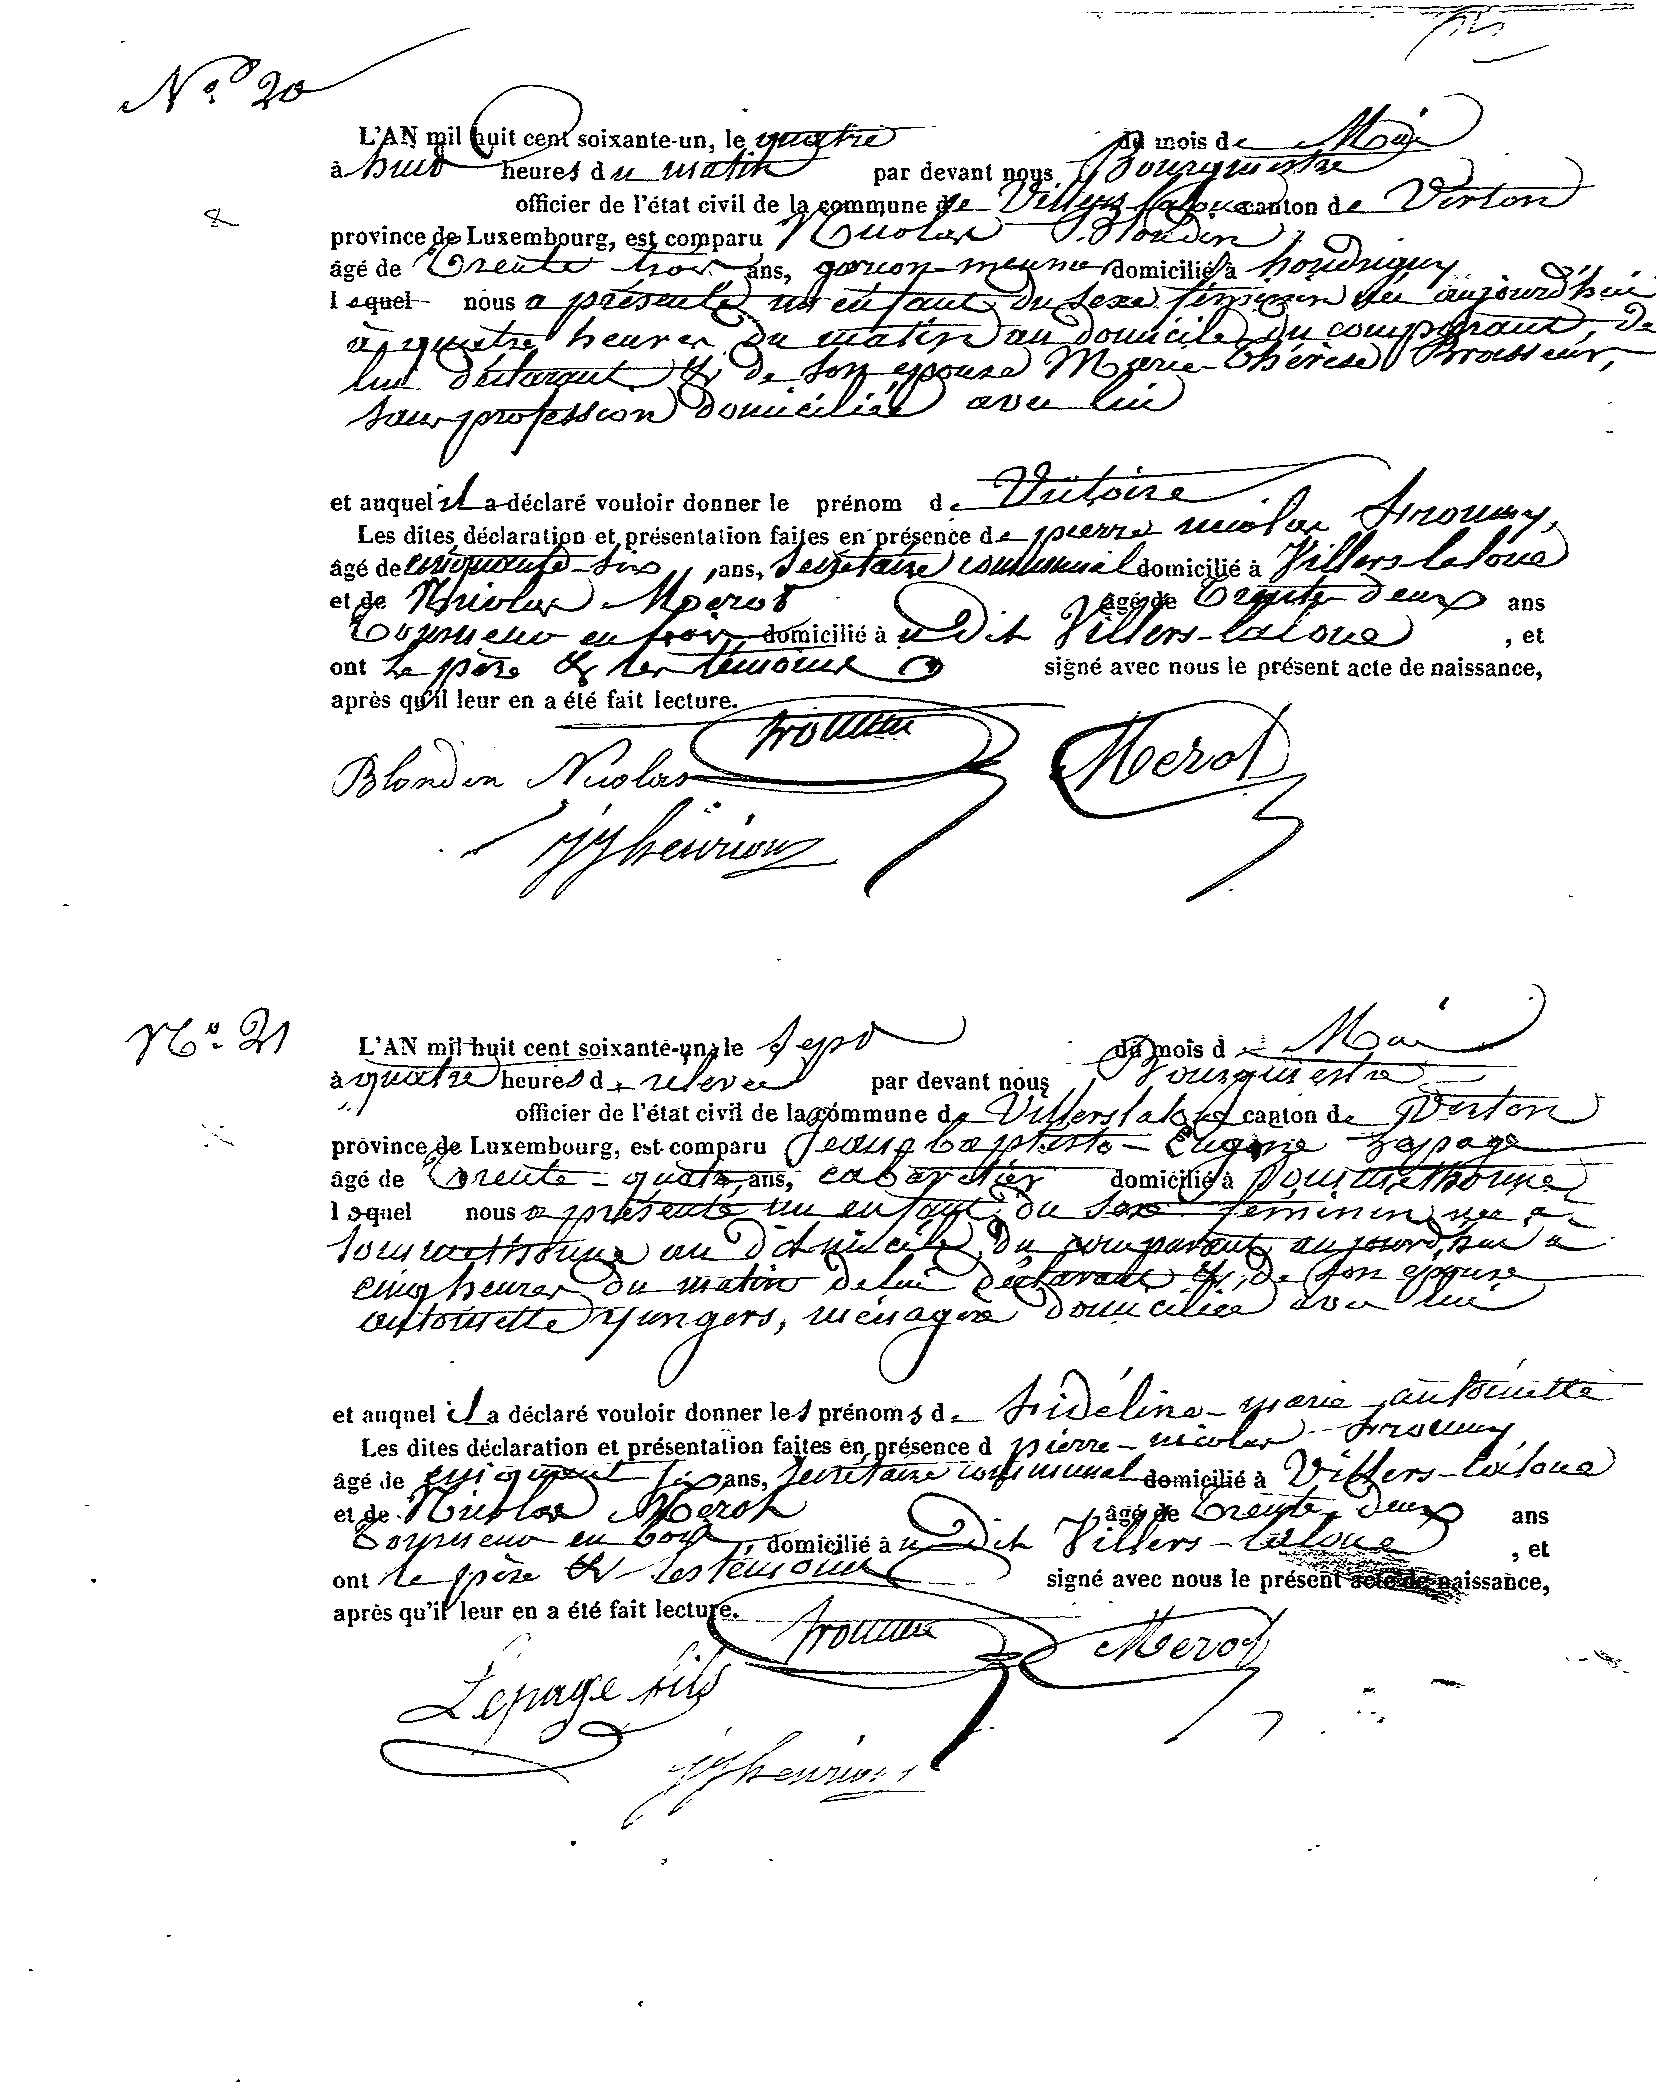 N° 20
L'AN mil huit cent soixante-un, le quatre du mois de Mai
à huit heures du matin par devant nous Bourgmestre
officier de l'état civil de la commune de Villers-laloue canton de Virton
province de Luxembourg, est comparu Nicolas Blondin
âgé de Trente trois ans, garçon meunier domicilié à houdrigny
lequel nous a présenté un enfant du sexe féminin née aujourd'hui
à quatre heures du matin au domicile du comparant, de
lui déclarant & de son épouse Marie-Thérèse Brasseur,
sans profession domiciliée avec lui
et auquel il a déclaré vouloir donner le prénom de Victoire
Les dites déclaration et présentation faites en présence de pierre nicolas
âgé de cinquante-six ans, secrétaire communal domicilié à Villers-laloue
et de Nicolas Merot âgé de Trente deux ans
Tourneur en bois domicilié à u dit Villers-laloue, et
ont le père & les témoins signé avec nous le présent acte de naissance,
après qu'il leur en a été fait lecture.
Blondin Nicolas Merot
N° 21
L'AN mil huit cent soixante-un, le sept du mois de Mai
à quatre heures de relevée par devant nous Bourgmestre
officier de l'état civil de la commune de Villerslaloue canton de Virton
province de Luxembourg, est comparu Jean baptiste-Eugène Lepage
âgé de Trente-quatre ans, cabaretier domicilié à Sommethonne
lequel nous a présenté un enfant du sexe féminin née à
Sommethonne au domicile du comparant aujourd'hui à
cinq heures du matin de lui déclarant & de son épouse
antoinette yungers, ménagère domiciliée avec lui
et auquel il a déclaré vouloir donner les prénoms de fidéline-marie-antoinette
Les dites déclaration et présentation faites en présence d pierre-nicolas
âgé de cinquante six ans, secrétaire communal domicilié à Villers-laloue
et de Nicolas Merot âgé de Trente deux ans
Tourneur en bois, domicilié à u dit Villers-laloue, et
ont le père & les témoins signé avec nous le présent acte de naissance,
après qu'il leur en a été fait lecture.
Lepage fils Merot